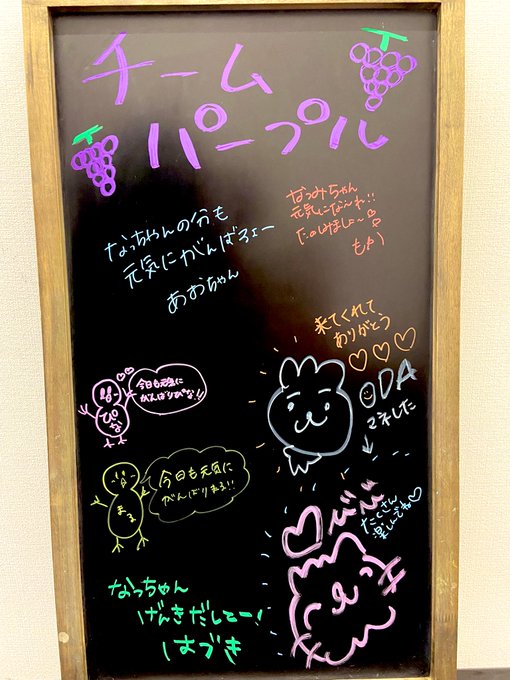 チーム
パープル
なつみちゃん
元気になーれ!!
たのしみましょ〜
もか
なっちゃんの分も
元気にがんばろェー
あおちゃん
来てくれて
ありがとう
ODA
マネした
今日も元気に
がんばりぴな!!
ぴな
今日も元気に
がんばりまる!!
まる
びび
たくさん
楽しんでね
なっちゃん
げんきだしてー!
はづき